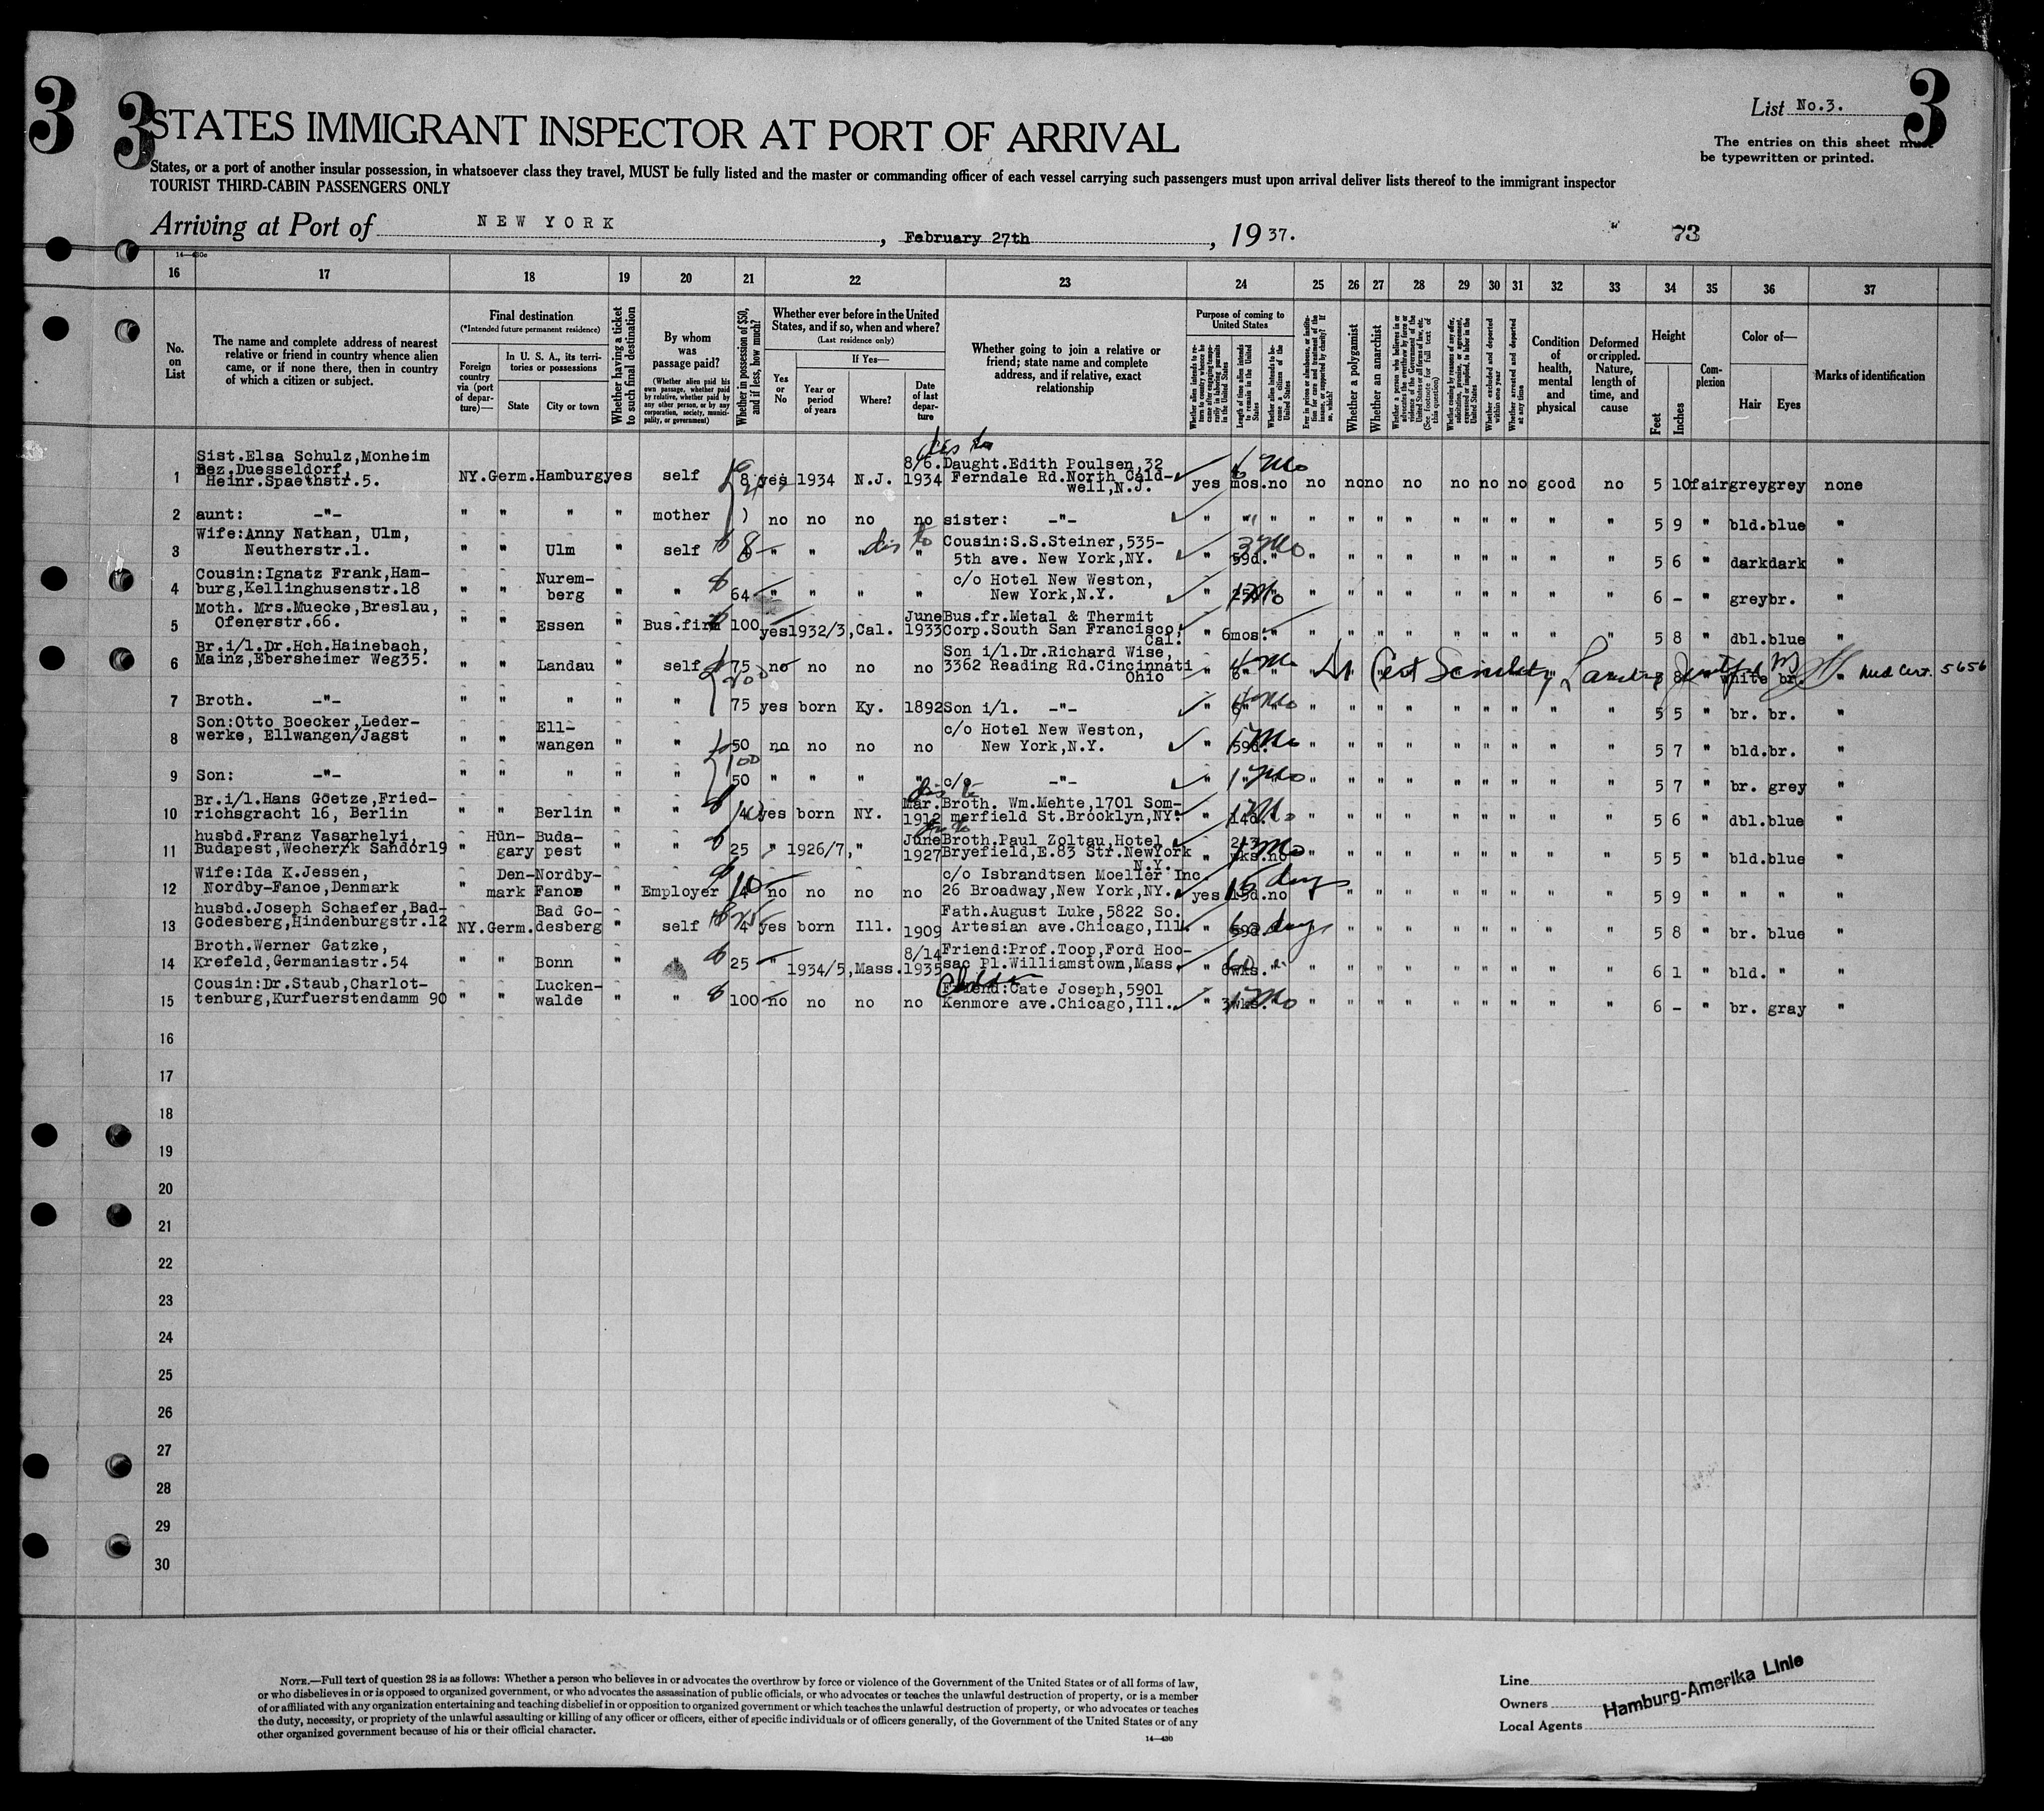 3
3
3
List No.3.
STATES IMMIGRANT INSPECTOR AT PORT OF ARRIVAL
The entries on this sheet must
be typewritten or printed.
States, or a port of another insular possession, in whatsoever class they travel, MUST be fully listed and the master or commanding officer of each vessel carrying such passengers must upon arrival deliver lists thereof to the immigrant inspector
TOURIST THIRD-CABIN PASSENGERS ONLY
Arriving at Port of NEW YORK, February 27th, 1937.
73
14—430c
16 17 18 19 20 21 22 23 24 25 26 27 28 29 30 31 32 33 34 35 36 37
No. on List
The name and complete address of nearest relative or friend in country whence alien came, or if none there, then in country of which a citizen or subject.
Final destination
(*Intended future permanent residence)
Foreign country via (port of departure)—
In U. S. A., its territories or possessions
State
City or town
Whether having a ticket to such final destination
By whom was passage paid?
(Whether alien paid his own passage, whether paid by relative, whether paid by any other person, or by any corporation, society, municipality, or government)
Whether in possession of $50, and if less, how much?
Whether ever before in the United States, and if so, when and where?
(Last residence only)
Yes or No
If Yes—
Year or period of years
Where?
Date of last departure
Whether going to join a relative or friend; state name and complete address, and if relative, exact relationship
Purpose of coming to United States
Whether alien intends to return to country whence he came after engaging temporarily in laboring pursuits in the United States
Length of time alien intends to remain in the United States
Whether alien intends to become a citizen of the United States
Ever in prison or almshouse, or institution for care and treatment of the insane, or supported by charity? If so, which?
Whether a polygamist
Whether an anarchist
Whether a person who believes in or advocates the overthrow by force or violence of the Government of the United States or all forms of law, etc. (See footnote for full text of this question)
Whether coming by reason of any offer, solicitation, promise, or agreement, expressed or implied, to labor in the United States
Whether excluded and deported within one year
Whether arrested and deported at any time
Condition of health, mental and physical
Deformed or crippled. Nature, length of time, and cause
Height
Feet
Inches
Complexion
Color of—
Hair
Eyes
Marks of identification
1 Sist.Elsa Schulz,Monheim
Bez.Duesseldorf,
Heinr.Spaethstr.5.
NY. Germ. Hamburg yes self 8 yes 1934 N.J. 8/6. 1934
Daught.Edith Poulsen,32
Ferndale Rd.North Cald-
well,N.J.
yes mos. no no no no no no no no good no 5 10 fair grey grey none
6 Mo
2 aunt: -"-
" " " " mother ) no no no no sister: -"- " " " " " " " " " " " " 5 9 " bld. blue "
3 Wife:Anny Nathan, Ulm,
Neutherstr.1.
" " Ulm " self 8 " " " "
Cousin:S.S.Steiner,535-
5th ave. New York,NY.
" 59d. " " " " " " " " " " 5 6 " dark dark "
3 Mo
4 Cousin:Ignatz Frank,Ham-
burg,Kellinghusenstr.18
" " Nurem-
berg " " 64 " " " "
c/o Hotel New Weston,
New York,N.Y.
" " " " " " " " " " " 6 - " grey br. "
5 Moth. Mrs.Muecke,Breslau,
Ofenerstr.66.
" " Essen " Bus.firm 100 yes 1932/3, Cal. June 1933
Bus.fr.Metal & Thermit
Corp.South San Francisco,
Cal.
" 6mos. " " " " " " " " " " 5 8 " dbl. blue "
6 Br.i/l.Dr.Hch.Hainebach,
Mainz,Ebersheimer Weg35.
" " Landau " self 75 no no no no
Son i/l.Dr.Richard Wise,
3362 Reading Rd.Cincinnati
Ohio
" 6" " 8 white br. "
Cert Senility
Med Cert. 5656
7 Broth. -"-
" " " " " 75 yes born Ky. 1892 Son i/l. -"- " 6" " " " " " " " " " " 5 5 " br. br. "
8 Son:Otto Boecker,Leder-
werke, Ellwangen/Jagst
" " Ell-
wangen " " 50 no no no no
100
c/o Hotel New Weston,
New York,N.Y.
" 59d. " " " " " " " " " " 5 7 " bld. br. "
9 Son: -"-
" " " " " 50 " " " " c/o -"- " " " " " " " " " 5 7 " br. grey "
1 Mo
10 Br.i/l.Hans Goetze,Fried-
richsgracht 16, Berlin
" " Berlin " " yes born NY. Mar. 1912
Broth. Wm.Mehte,1701 Som-
merfield St.Brooklyn,NY.
" 14d. " " " " " " " " " 5 6 " dbl. blue "
11 husbd.Franz Vasarhelyi,
Budapest,Wecherk Sandor19
" Hun-
gary Buda-
pest " " 25 " 1926/7, " June 1927
Broth.Paul Zoltau,Hotel
Bryefield,E.83 Str.NewYork
N.Y.
" wks. no " " " " " " " " " 5 5 " bld. blue "
12 Wife:Ida K.Jessen,
Nordby-Fanoe,Denmark
" Den-
mark Nordby-
Fanoe " Employer 10 no no no no
c/o Isbrandtsen Moeller Inc.
26 Broadway,New York,NY.
yes 15d. no " " " " " " " " 5 9 " " " "
15 days
13 husbd.Joseph Schaefer,Bad-
Godesberg,Hindenburgstr.12
NY. Germ. Bad Go-
desberg " self 4 yes born Ill. 1909
Fath.August Luke,5822 So.
Artesian ave.Chicago,Ill.
" 59d. " " " " " " " " " 5 8 " br. blue "
60 days
14 Broth.Werner Gatzke,
Krefeld,Germaniastr.54
" " Bonn " 25 " 1934/5, Mass. 8/14 1935
Friend:Prof.Toop,Ford Hoo-
sac Pl.Williamstown,Mass.
" 6wks. " " " " " " " " " " 6 1 " bld. " "
15 Cousin:Dr.Staub,Charlot-
tenburg,Kurfuerstendamm 90
" " Lucken-
walde " " 100 no no no no
Friend:Cate Joseph,5901
Kenmore ave.Chicago,Ill.
" 3wks. " " " " " " " " " 6 - " br. gray "
1 Mo
16
17
18
19
20
21
22
23
24
25
26
27
28
29
30
NOTE.—Full text of question 28 is as follows: Whether a person who believes in or advocates the overthrow by force or violence of the Government of the United States or of all forms of law,
or who disbelieves in or is opposed to organized government, or who advocates the assassination of public officials, or who advocates or teaches the unlawful destruction of property, or is a member
of or affiliated with any organization entertaining and teaching disbelief in or opposition to organized government or which teaches the unlawful destruction of property, or who advocates or teaches
the duty, necessity, or propriety of the unlawful assaulting or killing of any officer or officers, either of specific individuals or of officers generally, of the Government of the United States or of any
other organized government because of his or their official character.
14—430
Line
Owners
Local Agents
Hamburg-Amerika Linie